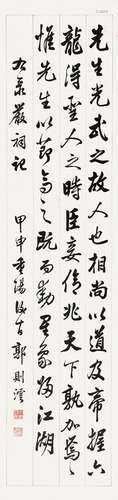 先生光武之故人也相尚以道及帝握六
龍得聖人之時臣妾億兆天下孰加焉
惟先生以節高之既而動星象歸江湖
右录嚴祠記
甲申重陽後吉郭則澐